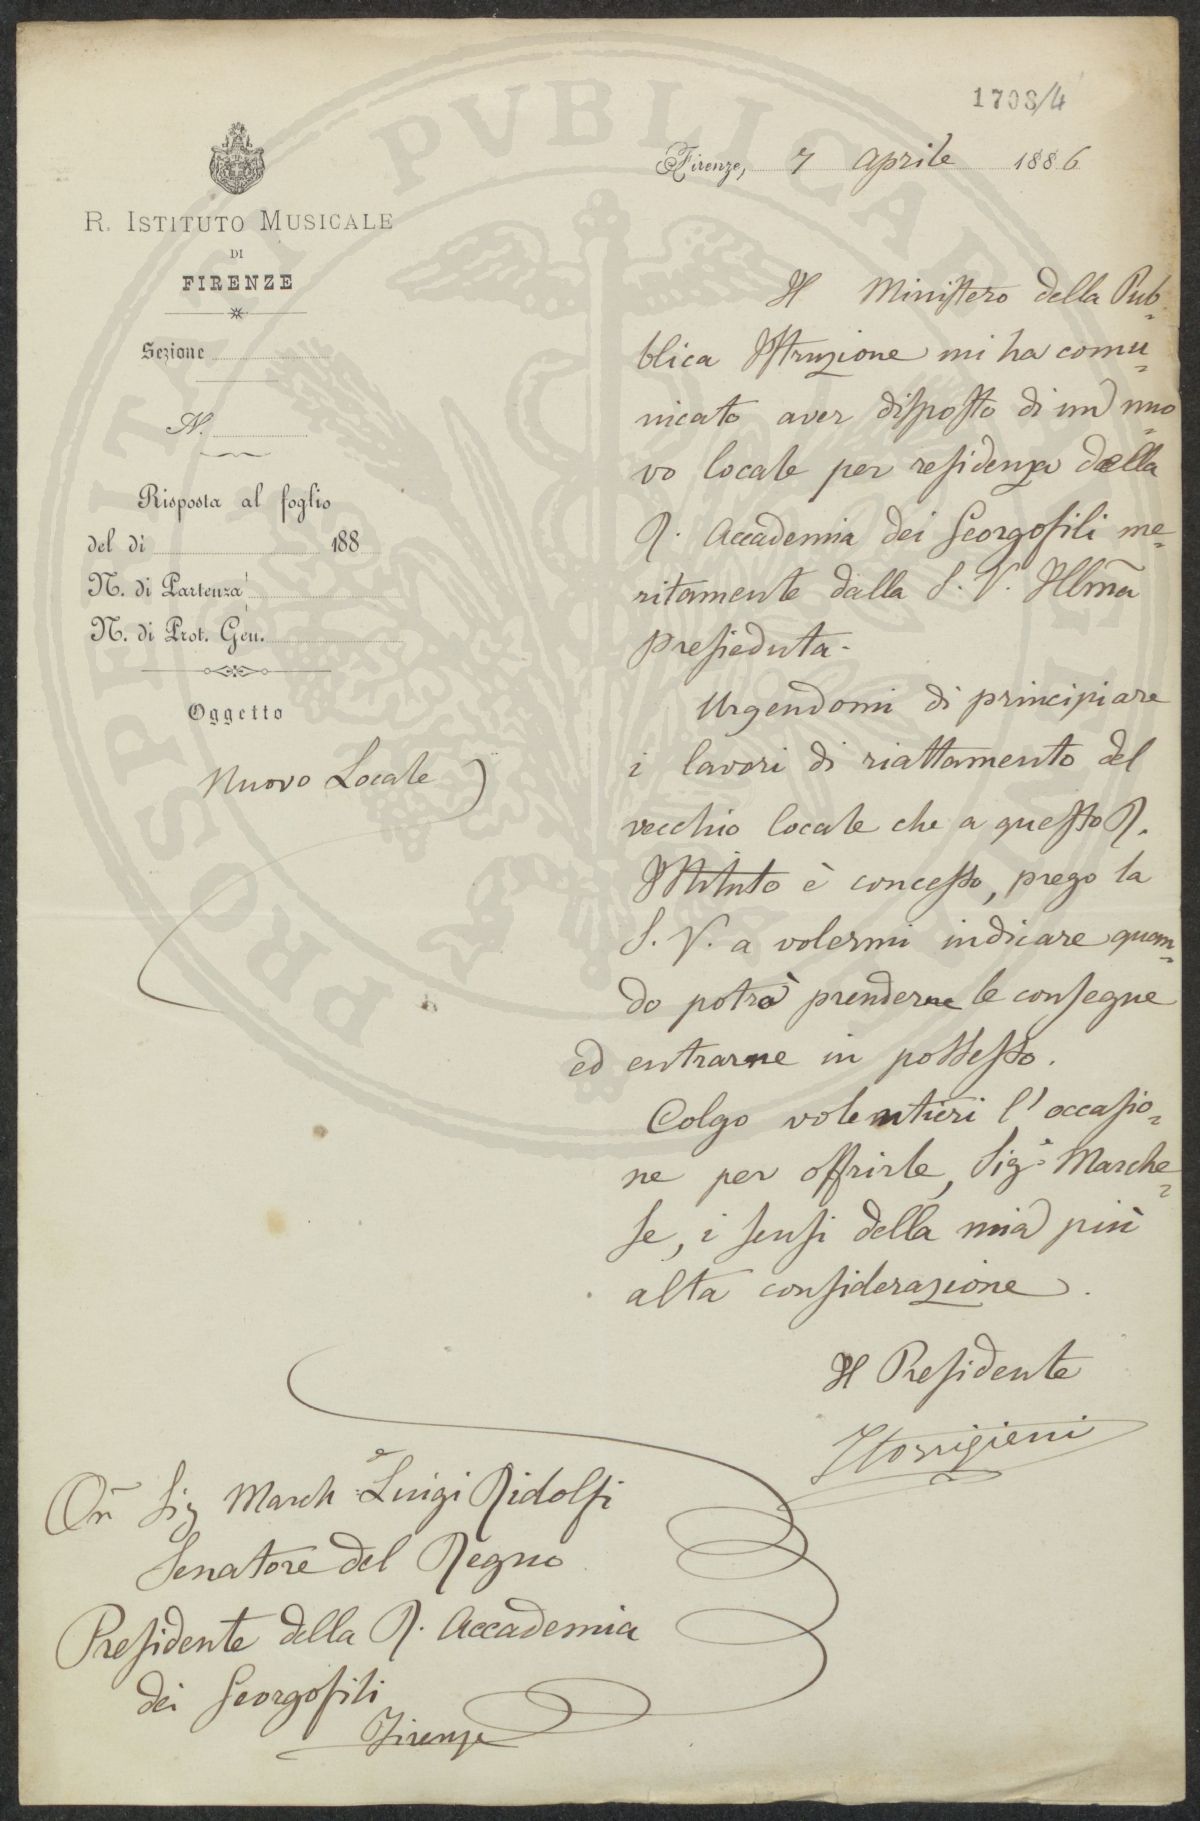 1703/4
Firenze, 7 Aprile 1886
R. ISTITUTO MUSICALE
DI
FIRENZE
Sezione
N.
Risposta al foglio
del dì 188
N. di Partenza
N. di Prot. Gen.
Oggetto
Nuovo Locale
Il Ministero della Pub=
blica Istruzione mi ha comu=
nicato aver disposto di un nuo=
vo locale per residenza della
R. Accademia dei Georgofili me=
ritamente dalla S. V. Illma
presieduta.
Urgendomi di principiare
i lavori di riattamento del
vecchio locale che a questo R.
Istituto è concesso, prego la
S. V. a volermi indicare quan=
do potrò prenderne le consegne
ed entrarne in possesso.
Colgo volentieri l'occasio=
ne per offrirle, Sig.e Marche=
se, i sensi della mia più
alta considerazione.
Il Presidente
Torrigiani
On Sig March.e Luigi Ridolfi
Senatore del Regno
Presidente della R. Accademia
dei Georgofili
Firenze
PROSPERITATI PVBLICAE